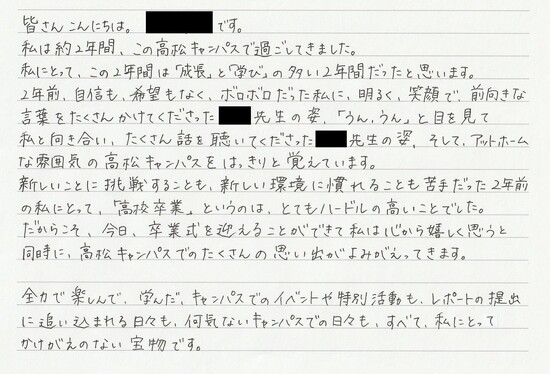 皆さんこんにちは。 です。
私は約2年間、この高松キャンパスで過ごしてきました。
私にとって、この2年間は「成長」と「学び」の多い2年間だったと思います。
2年前、自信も、希望もなく、ボロボロだった私に、明るく、笑顔で、前向きな
言葉をたくさんかけてくださった 先生の姿、「うん、うん」と目を見て
私と向き合い、たくさん話を聴いてくださった 先生の姿、そして、アットホーム
な雰囲気の高松キャンパスをはっきりと覚えています。
新しいことに挑戦することも、新しい環境に慣れることも苦手だった2年前
の私にとって、「高校卒業」というのは、とてもハードルの高いことでした。
だからこそ、今日、卒業式を迎えることができて私は心から嬉しく思うと
同時に、高松キャンパスでのたくさんの思い出がよみがえってきます。
全力で楽しんで、学んだ、キャンパスでのイベントや特別活動も、レポートの提出
に追い込まれる日々も、何気ないキャンパスでの日々も、すべて、私にとって
かけがえのない宝物です。